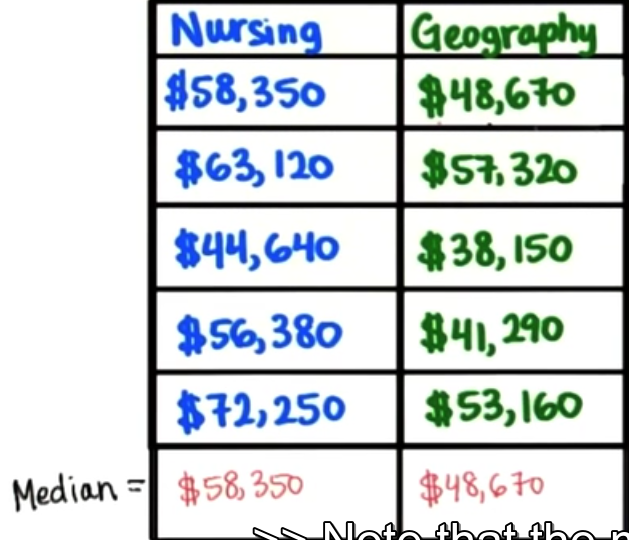 Nursing Geography
$58,350 $48,670
$63,120 $57,320
$44,640 $38,150
$56,380 $41,290
$72,250 $53,160
Median = $58,350 $48,670
>> Note that the